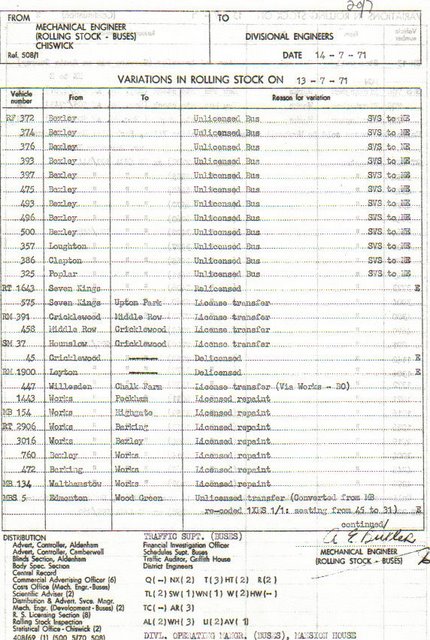 20/7
FROM
TO
MECHANICAL ENGINEER
(ROLLING STOCK - BUSES)
CHISWICK
DIVISIONAL ENGINEERS
Ref. 508/1
DATE 14 - 7 - 71
VARIATIONS IN ROLLING STOCK ON 13 - 7 - 71
Vehicle number From To Reason for variation
RF 372 Bexley Unlicensed Bus SVS to NE
374 Bexley Unlicensed Bus SVS to NE
376 Bexley Unlicensed Bus SVS to NE
393 Bexley Unlicensed Bus SVS to NE
397 Bexley Unlicensed Bus SVS to NE
475 Bexley Unlicensed Bus SVS to NE
493 Bexley Unlicensed Bus SVS to NE
496 Bexley Unlicensed Bus SVS to NE
500 Bexley Unlicensed Bus SVS to NE
357 Loughton Unlicensed Bus SVS to NE
386 Clapton Unlicensed Bus SVS to NE
325 Poplar Unlicensed Bus SVS to NE
RT 1643 Seven Kings Relicensed E
575 Seven Kings Upton Park License transfer
RM 391 Cricklewood Middle Row License transfer
458 Middle Row Cricklewood License transfer
SM 37 Hounslow Cricklewood License transfer
45 Cricklewood Delicensed E
RM 1900 Leyton Delicensed E
447 Willesden Chalk Farm License transfer (Via Works - BO)
1443 Works Peckham Licensed repaint
MB 154 Works Highgate Licensed repaint
RT 2906 Works Barking Licensed repaint
3016 Works Bexley Licensed repaint
760 Bexley Works Licensed repaint
472 Barking Works Licensed repaint
MB 134 Walthamstow Works Licensed repaint
MBS 5 Edmonton Wood Green Unlicensed transfer (Converted from MB
re-coded 1MBS 1/1: seating from 45 to 31) E
continued/
A E Butler
MECHANICAL ENGINEER
(ROLLING STOCK - BUSES)
DISTRIBUTION
Advert. Controller, Aldenham
Advert. Controller, Camberwell
Blinds Section, Aldenham
Body Spec. Section
Central Record
Commercial Advertising Officer (6)
Costs Office (Mech. Engr.-Buses)
Scientific Adviser (2)
Distribution & Advert. Svce. Mngr.
Mech. Engr. (Development - Buses) (2)
R. S. Licensing Section (8)
Rolling Stock Inspection
Statistical Office - Chiswick (2)
408/69 (1) (500 5/70 508)
TRAFFIC SUPT. (BUSES)
Financial Investigation Officer
Schedules Supt. Buses
Traffic Auditor, Griffith House
District Engineers
Q(-) NX(2) T(3) HT(2) R(2)
TL(2) SW(1) WN(1) W(2) HW(-)
TC(-) AR(3)
AL(2) WH(3) U(2) AV(1)
DIVL. OPERATING MANGR. (BUSES) MANSION HOUSE